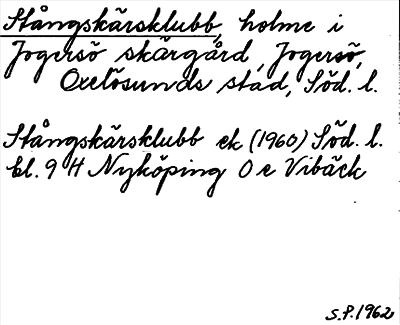 Stångskärsklubb, holme i
Jogersö skärgård, Jogersö,
Oxelösunds stad, Söd. l.
Stångskärsklubb ek (1960) Söd. l.
bl. 9 H Nyköping O e Vibäck
S.P. 1962